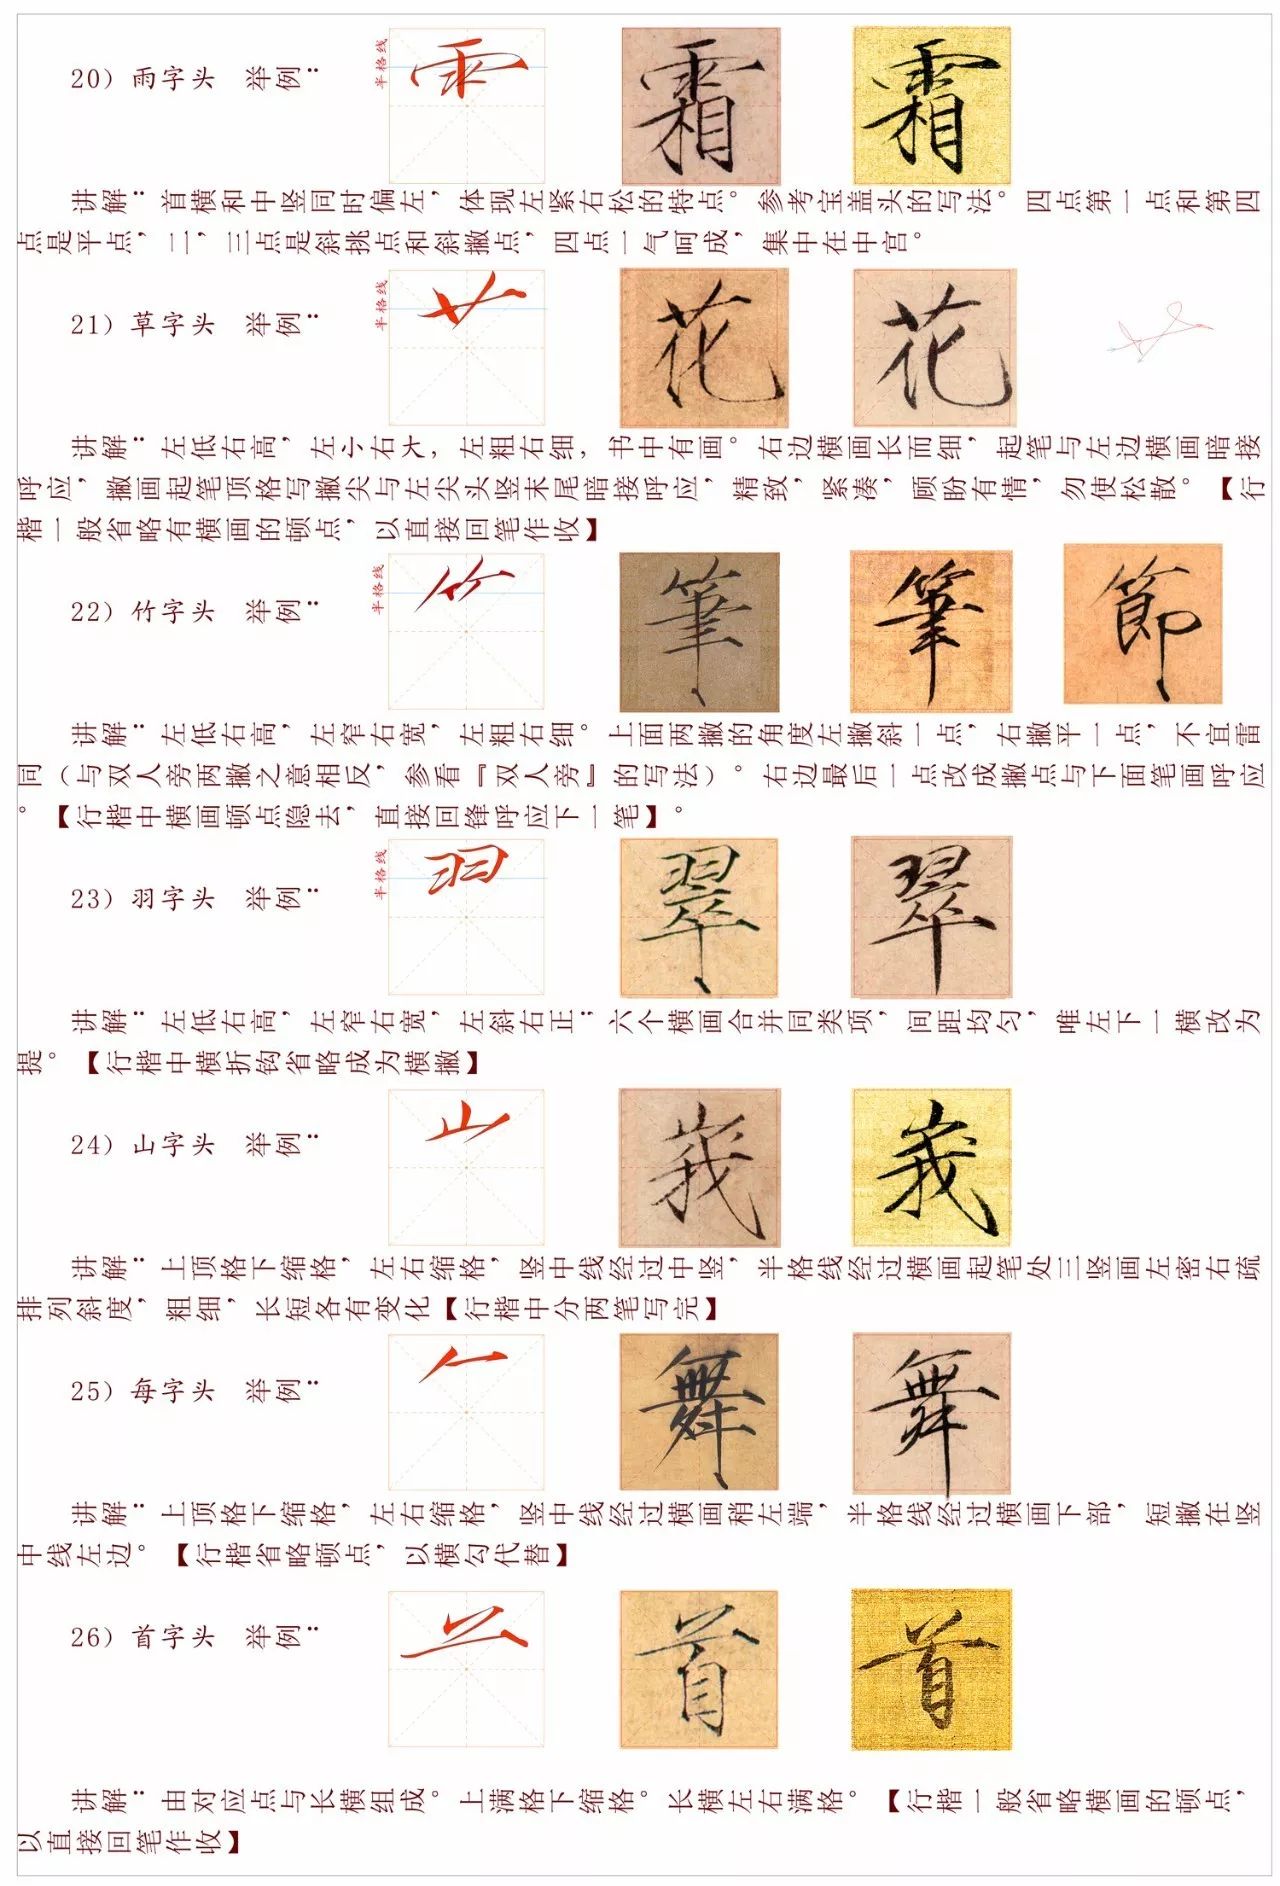 20）雨字头 举例：
半格线
霜 霜
讲解：首横和中竖同时偏左，体现左紧右松的特点。参考宝盖头的写法。四点第一点和第四
点是平点，二，三点是斜挑点和斜撇点，四点一气呵成，集中在中宫。
21）草字头 举例：
半格线
花 花
讲解：左低右高，左小右大，左粗右细，书中有画。右边横画长而细，起笔与左边横画暗接
呼应，撇画起笔顶格写撇尖与左尖头竖末尾暗接呼应，精致，紧凑，顾盼有情，勿使松散。【行
楷一般省略有横画的顿点，以直接回笔作收】
22）竹字头 举例：
半格线
筆 筆 節
讲解：左低右高，左窄右宽，左粗右细。上面两撇的角度左撇斜一点，右撇平一点，不宜雷
同（与双人旁两撇之意相反，参看『双人旁』的写法）。右边最后一点改成撇点与下面笔画呼应
。【行楷中横画顿点隐去，直接回锋呼应下一笔】。
23）羽字头 举例：
半格线
翠 翠
讲解：左低右高，左窄右宽，左斜右正；六个横画合并同类项，间距均匀，唯左下一横改为
提。【行楷中横折钩省略成为横撇】
24）山字头 举例：
峩 峩
讲解：上顶格下缩格，左右缩格，竖中线经过中竖，半格线经过横画起笔处三竖画左密右疏
排列斜度，粗细，长短各有变化【行楷中分两笔写完】
25）每字头 举例：
舞 舞
讲解：上顶格下缩格，左右缩格，竖中线经过横画稍左端，半格线经过横画下部，短撇在竖
中线左边。【行楷省略顿点，以横勾代替】
26）首字头 举例：
首 首
讲解：由对应点与长横组成。上满格下缩格。长横左右满格。【行楷一般省略横画的顿点，
以直接回笔作收】